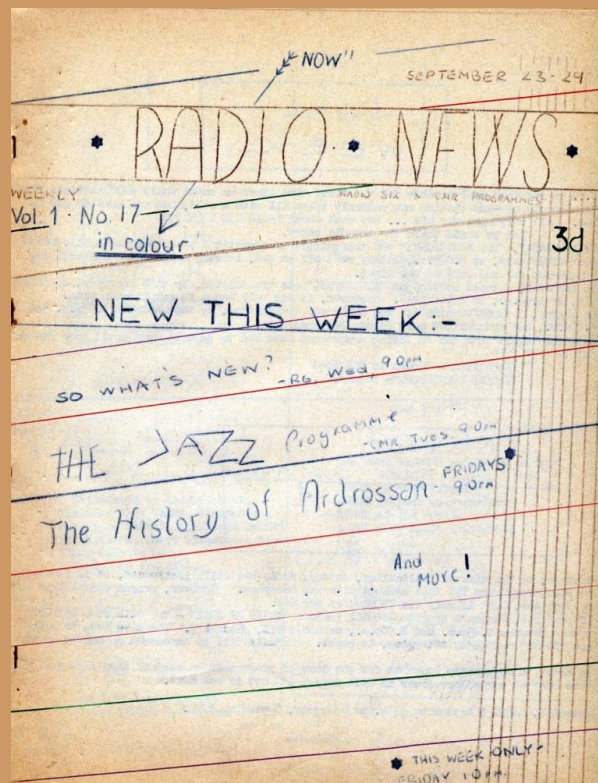 "NOW"
SEPTEMBER 23-29
* RADIO * NEWS *
WEEKLY
RADIO SIX & CMR PROGRAMMES
Vol 1 · No. 17
in colour
3d
NEW THIS WEEK:-
SO WHAT'S NEW? -R6, Wed, 9 0pm
THE JAZZ Programme -CMR TUES. 9 0pm
The History of Ardrossan - FRIDAYS*
9 0pm
And
More!
* THIS WEEK ONLY -
FRIDAY 10pm.